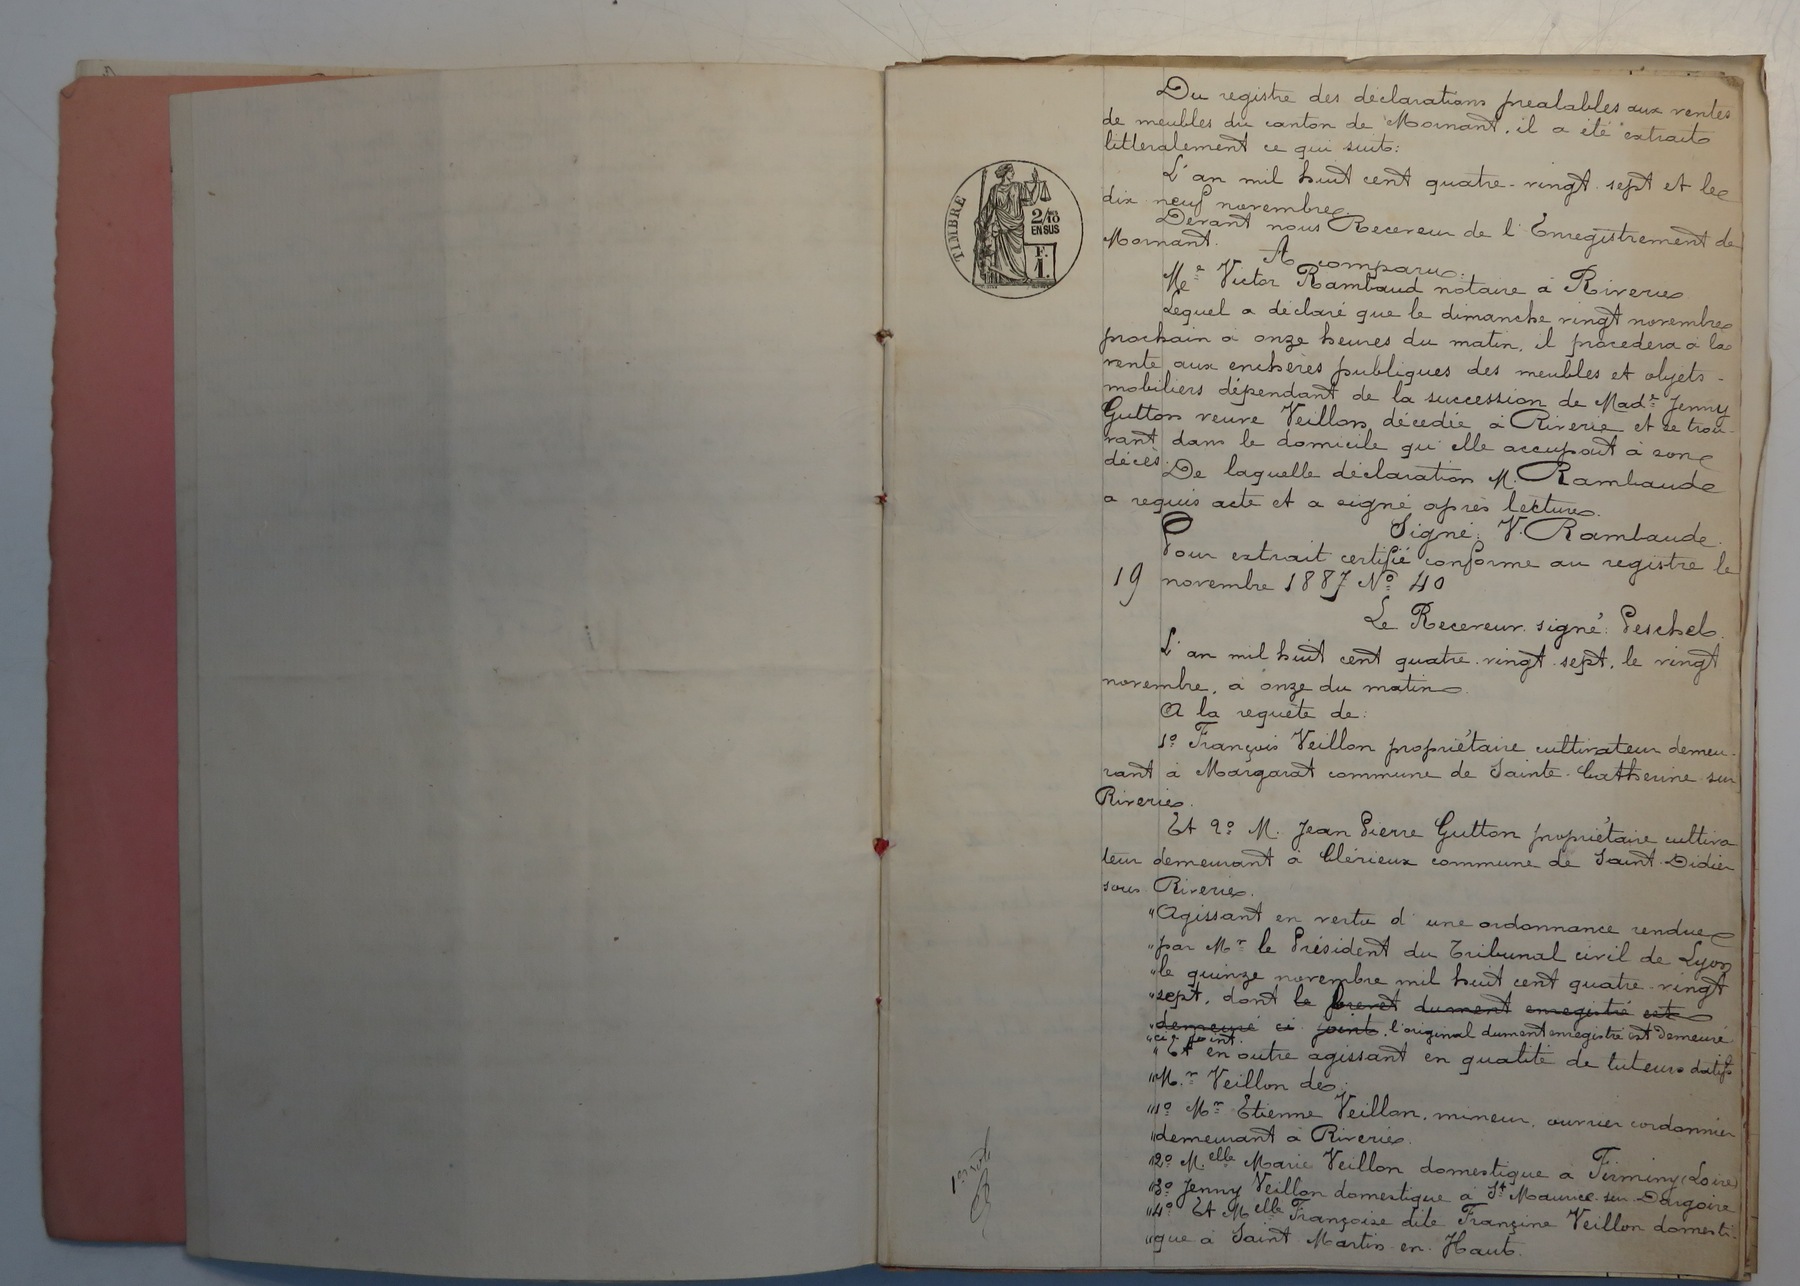 Du registre des déclarations préalables aux ventes
de meubles du canton de Mornant, il a été extrait
littéralement ce qui suit:
L'an mil huit cent quatre-vingt sept et le
dix neuf novembre
Devant nous Receveur de l'Enregistrement de
Mornant.
A comparu:
Me Victor Rambaud notaire à Riverie
Lequel a déclaré que le dimanche vingt novembre
prochain à onze heures du matin, il procédera à la
vente aux enchères publiques des meubles et objets
mobiliers dépendant de la succession de Made Jenny
Gutton veuve Veillon, décédée à Riverie et se trou-
vant dans le domicile qu'elle occupait à son
décès.
De laquelle déclaration M. Rambaud
a requis acte et a signé après lecture.
Signé: V. Rambaud.
Pour extrait certifié conforme au registre le
19 novembre 1887 No 40
Le Receveur signé: Peschel.
L'an mil huit cent quatre-vingt-sept, le vingt
novembre, à onze du matin.
A la requête de:
1o François Veillon propriétaire cultivateur demeu-
rant à Margarat commune de Sainte-Catherine-sur
Riverie.
Et 2o M. Jean Pierre Gutton propriétaire cultiva
teur demeurant à Clérieux commune de Saint-Didier
sous Riverie.
"Agissant en vertu d'une ordonnance rendue
"par Mr le Président du Tribunal civil de Lyon
"le quinze novembre mil huit cent quatre-vingt
"sept, dont le brevet dument enregistré est
"demeuré ci joint, l'original dument enregistré est demeuré
"ci-joint.
"Et en outre agissant en qualité de tuteurs datifs
"Mr Veillon de:
"1o Mr Étienne Veillon, mineur, ouvrier cordonnier
"demeurant à Riverie.
"2o Melle Marie Veillon domestique à Firminy (Loire)
"3o Jenny Veillon domestique à St Maurice-sur-Dargoire
"4o Et Melle Françoise dite Francine Veillon domesti-
"que à Saint Martin-en-Haut.
TIMBRE
2/10
EN SUS
F.
1.